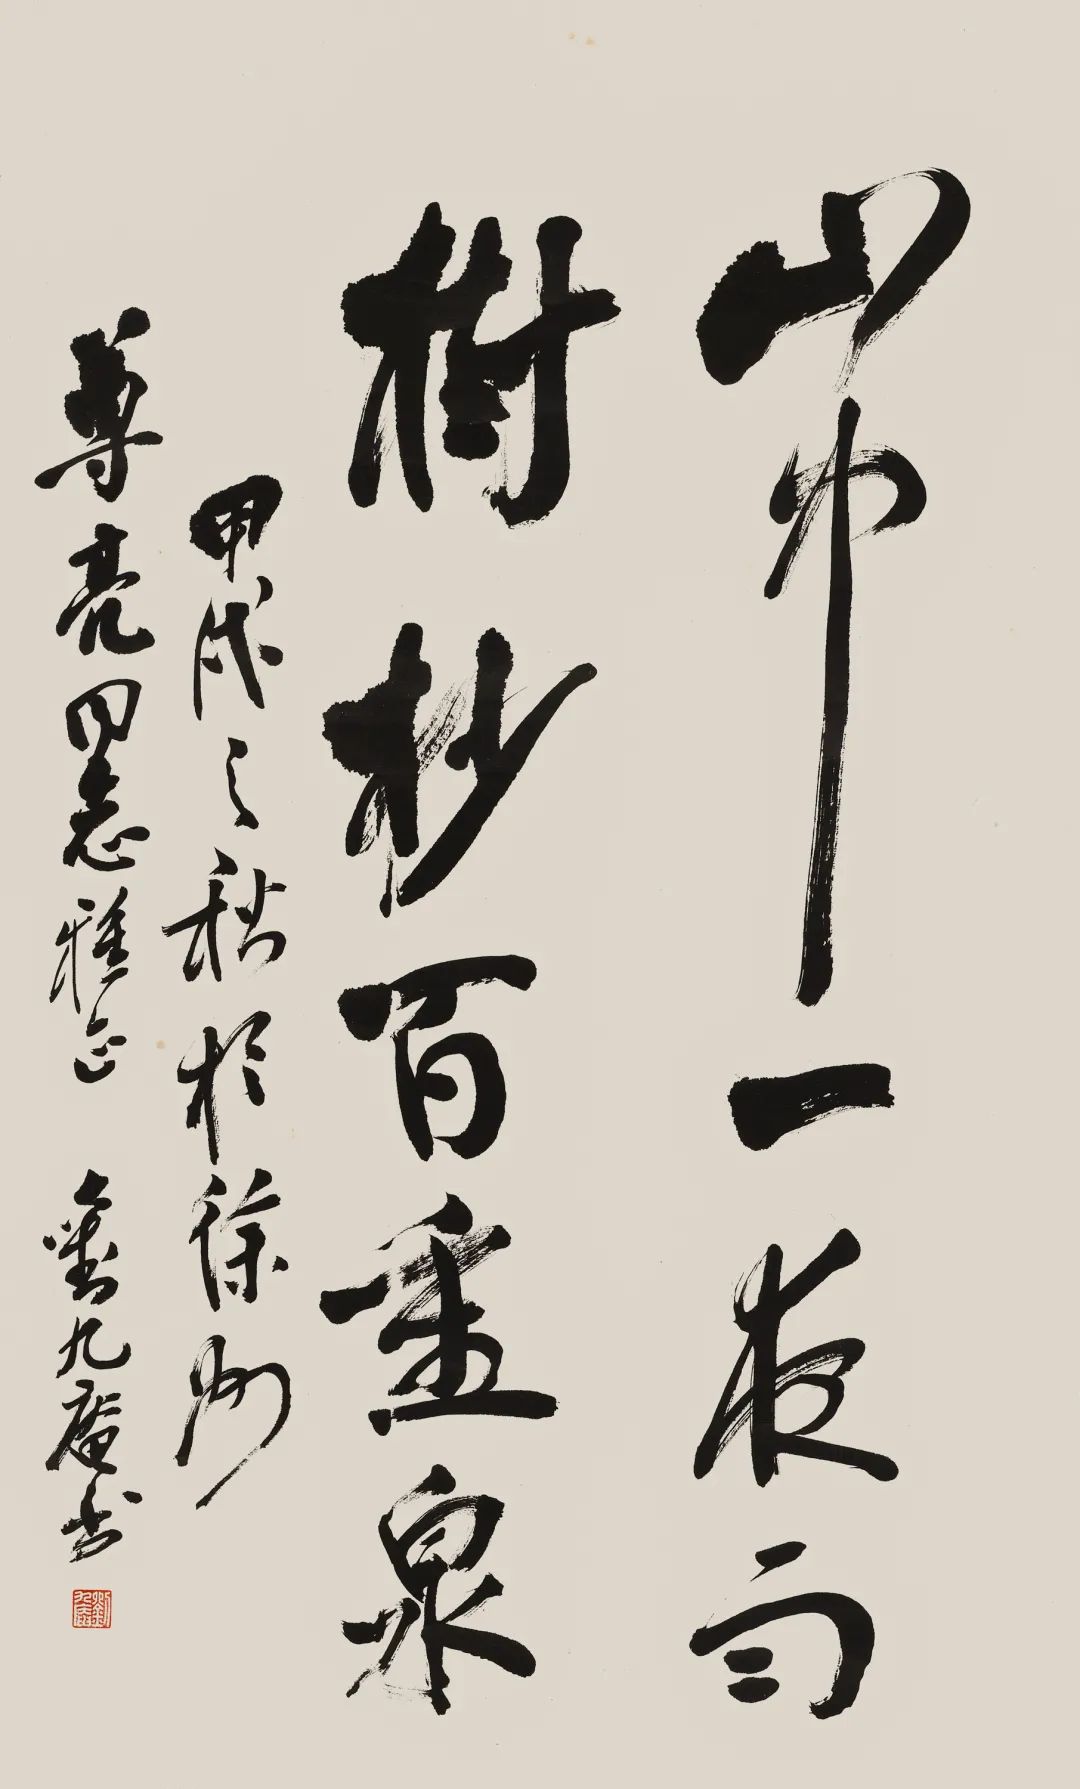 山中一夜雨
樹杪百重泉
甲戌之秋於徐州
尊亮同志雅正 劉九庵書